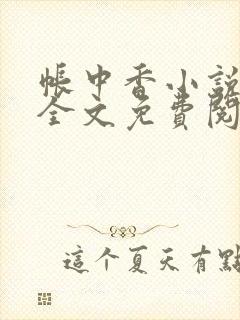 帳中香小說
全文免費閱
這个夏天有點